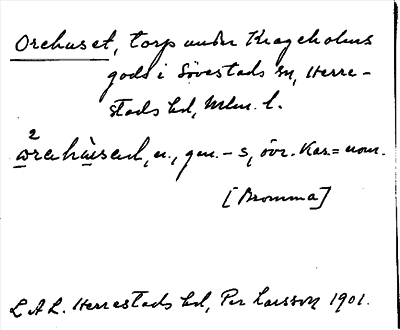 Orehuset, torp under Krageholms
gods i Sövestads sn, Herre-
stads hd, Mlm. l.
2
n., gen. -s, övr. kas. = nom.
[Bromma]
LAL. Herrestads hd, Per Larsson 1901.